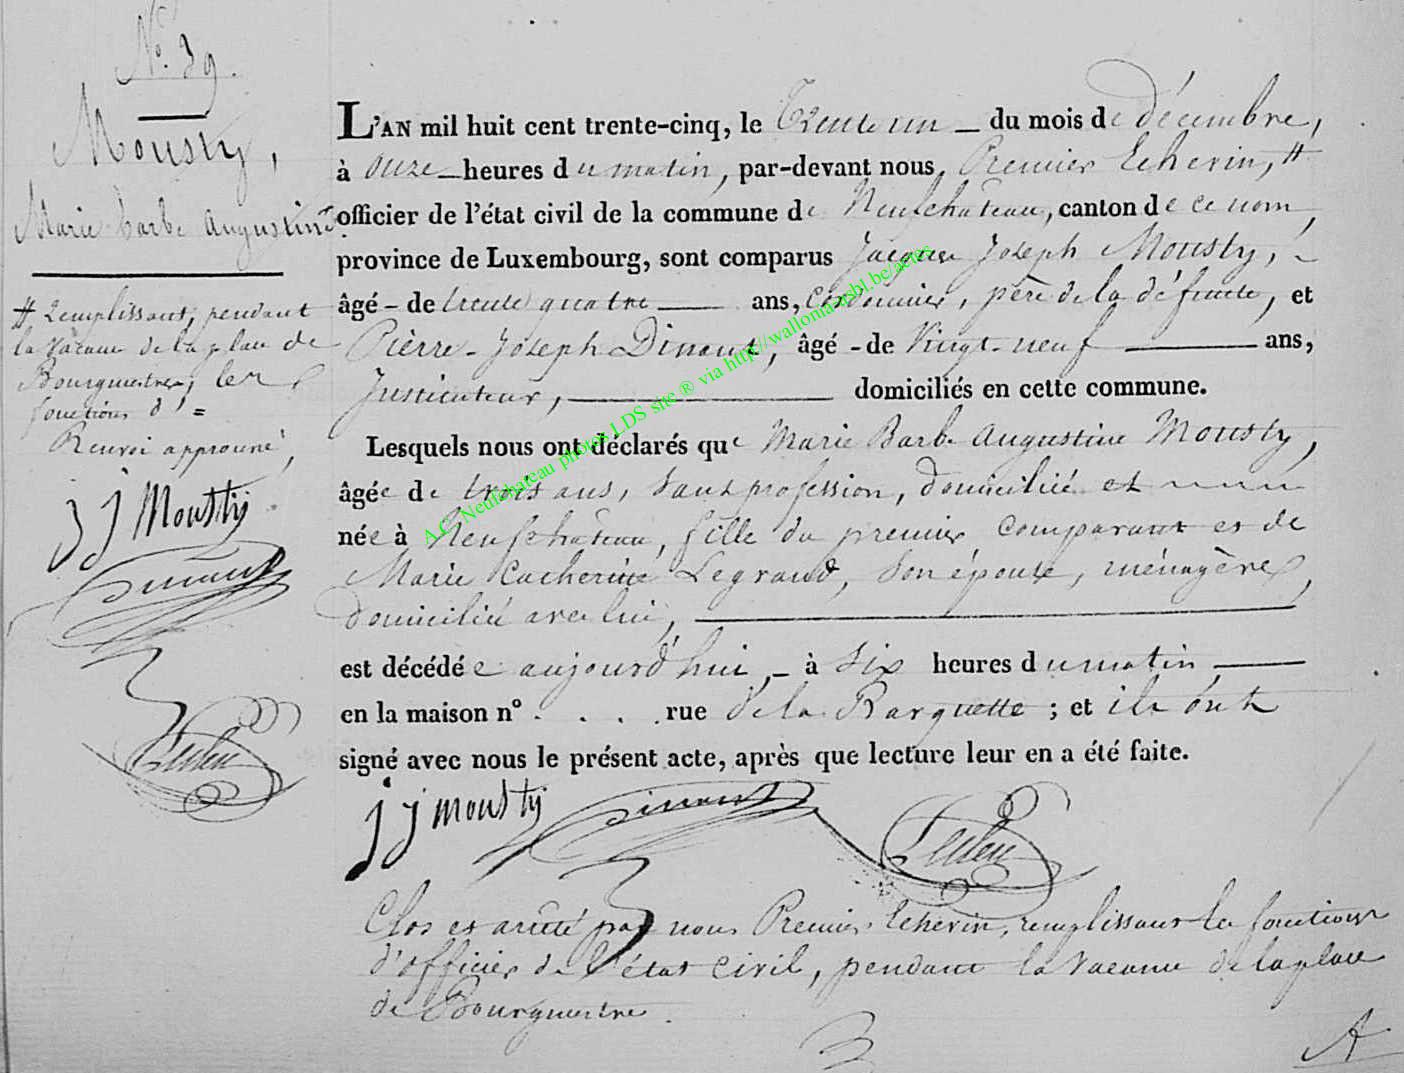 N.° 39.
Mousty,
Marie Barbe Augustine
# Remplissant, pendant
la vacance de la place de
Bourgmestre, les
fonctions d' =
Renvoi approuvé,
J J Mousty
Dinant
L'AN mil huit cent trente-cinq, le Trente un _ du mois de décembre,
à onze _ heures du matin, par-devant nous Premier Echevin, #
officier de l'état civil de la commune de Neufchâteau, canton de ce nom,
province de Luxembourg, sont comparus Jacques Joseph Mousty, -
âgé - de trente quatre ___ ans, cordonnier, père de la défunte, et
Pierre-Joseph Dinant, âgé - de vingt-neuf ___ ans,
Instituteur, ___ domiciliés en cette commune.
Lesquels nous ont déclarés que Marie Barbe Augustine Mousty,
âgée de trois ans, sans profession, domiciliée et
née à Neufchâteau, fille du premier comparant et de
Marie Catherine Legrand, son épouse, ménagère,
domiciliée avec lui, ___
est décédée aujourd'hui, - à six heures du matin, ___
en la maison n° . . . . rue de la Barquette ; et ils ont
signé avec nous le présent acte, après que lecture leur en a été faite.
J J Mousty Dinant
Clos et arrêté par nous Premier Echevin, remplissant les fonctions
d'officier de l'état civil, pendant la vacance de la place
de Bourgmestre.
A.C. Neufchateau photos LDS site ® via http://wallonia-asbl.be/actes